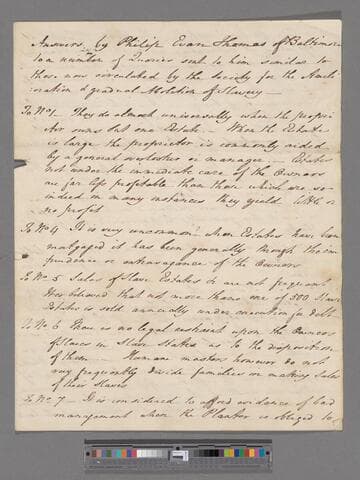 Answers by Philip Evan Thomas of Baltimore
to a number of Queries sent to him similar to
those now circulated by the Society for the Amelioration
& gradual Abolition of Slavery —
To No 1 They do almost universally when the proprietor
owns but one Estate. When the Estate
is large the proprietor is commonly aided
by a general overseer or manager — Estates
not under the immediate care of the Owners
are far less profitable than those which are so
indeed in many instances they yield little or
no profit
To No 4 It is very uncommon when Estates have been
mortgaged it has been generally through the imprudence
or extravagance of the Owners
To No 5 Sales of Slave Estates &c are not frequent
It is believed that not more than one of 500 Slave
Estates is sold annually under execution for debt
To No 6 There is no legal restraint upon the Owners
of Slaves in Slave States as to the disposition
of them — Humane masters however do not
very frequently divide families in making sales
of their Slaves
To No 7 It is considered to afford evidence of bad
management when the Planter is obliged to